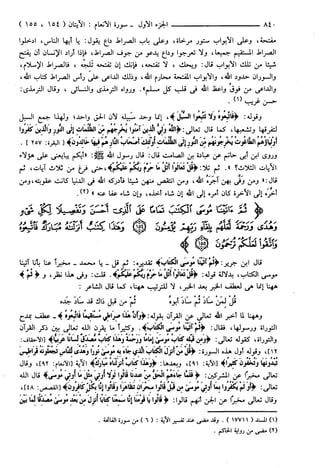 ٨٤٠ الجزء الأول ـ سورة الأنعام : الآيتان (١٥٤ ، ١٥٥)
مفتحة، وعلى الأبواب ستور مرخاة، وعلى باب الصراط داع يقول: يا أيها الناس، ادخلوا
الصراط المستقيم جميعا، ولا تعرجوا وداع يدعو من جوف الصراط، فإذا أراد الإنسان أن يفتح
شيئا من تلك الأبواب قال: ويحك، لا تفتحه، فإنك إن تفتحه تلجه، فالصراط الإسلام،
والسوران حدود الله، والأبواب المفتحة محارم الله، وذلك الداعي على رأس الصراط كتاب الله،
والداعي من فوق واعظ الله في قلب كل مسلم». ورواه الترمذي والنسائي، وقال الترمذي:
حسن غريب (١) .
وقوله: ﴿فاتبعوه ولا تتبعوا السبل﴾، إنما وحد سبيله لأن الحق واحد؛ ولهذا جمع السبل
لتفرقها وتشعبها، كما قال تعالى: ﴿الله ولي الذين آمنوا يخرجهم من الظلمات إلى النور والذين كفروا
أولياؤهم الطاغوت يخرجونهم من النور إلى الظلمات أولئك أصحاب النار هم فيها خالدون﴾ [البقرة: ٢٥٧] .
وروى ابن أبي حاتم عن عبادة بن الصامت قال: قال رسول الله ﷺ: «أيكم يبايعني على هؤلاء
الآيات الثلاث؟» . ثم تلا: ﴿قل تعالوا أتل ما حرم ربكم عليكم﴾، حتى فرغ من ثلاث آيات، ثم
قال: «ومن وفى بهن أجره الله، ومن انتقص منهن شيئا فأدركه الله في الدنيا كانت عقوبته، ومن
أخره إلى الآخرة كان أمره إلى الله إن شاء أخذه، وإن شاء عفا عنه» (٢).
ثُمَّ آتَيْنَا مُوسَى الْكِتَابَ تَمَامًا عَلَى الَّذِي أَحْسَنَ وَتَفْصِيلًا لِّكُلِّ شَيْءٍ
وَهُدًى وَرَحْمَةً لَّعَلَّهُم بِلِقَاءِ رَبِّهِمْ يُؤْمِنُونَ ﴿١٥٤﴾ وَهَٰذَا كِتَابٌ أَنزَلْنَاهُ مُبَارَكٌ فَاتَّبِعُوهُ
وَاتَّقُوا لَعَلَّكُمْ تُرْحَمُونَ ﴿١٥٥﴾
قال ابن جرير: ﴿ثم آتينا موسى الكتاب﴾، تقديره: ثم قل ـ يا محمد ـ مخبرا عنا بأنا آتينا
موسى الكتاب، بدلالة قوله: ﴿قل تعالوا أتل ما حرم ربكم عليكم﴾. قلت: وفي هذا نظر، و﴿ثم﴾
هاهنا إنما هي لعطف الخبر بعد الخبر، لا للترتيب هاهنا، كما قال الشاعر :
قل لمن ساد ثم ساد أبوه ثم من قبل ذاك قد ساد جده
وههنا لما أخبر الله تعالى عن القرآن بقوله: ﴿وأن هذا صراطي مستقيما فاتبعوه﴾ ـ عطف بمدح
التوراة ورسولها، فقال: ﴿ثم آتينا موسى الكتاب﴾. وكثيرا ما يقرن الله تعالى بين ذكر القرآن
والتوراة، كقوله تعالى: ﴿ومن قبله كتاب موسى إماما ورحمة وهذا كتاب مصدق لسانا عربيا﴾ [الأحقاف:
١٢]، وقوله أول هذه السورة: ﴿قل من أنزل الكتاب الذي جاء به موسى نورا وهدى للناس تجعلونه قراطيس
تبدونها وتخفون كثيرا﴾ [الآية: ٩١]، وبعدها: ﴿وهذا كتاب أنزلناه مبارك﴾ [الآية: ٩٢]، وقال
تعالى مخبرا عن المشركين: ﴿فلما جاءهم الحق من عندنا قالوا لولا أوتي مثل ما أوتي موسى﴾ قال الله
تعالى: ﴿أو لم يكفروا بما أوتي موسى من قبل قالوا سحران تظاهرا وقالوا إنا بكل كافرون﴾ [القصص: ٤٨]،
وقال تعالى مخبرا عن الجن أنهم قالوا: ﴿يا قومنا إنا سمعنا كتابا أنزل من بعد موسى مصدقا لما بين
(١) المسند (١٧٧١١) . وقد مضى عند تفسير الآية : (٦) من سورة الفاتحة .
(٢) مضى من رواية الحاكم .